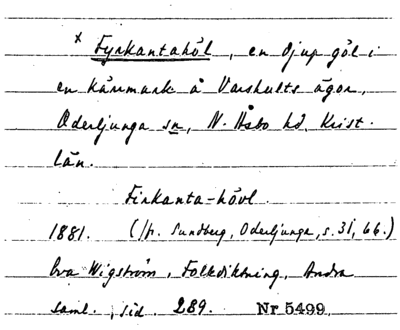 x Fyrkantahöl, en djup göl i
en kärrmark å Varshults ägor,
Oderljunga sn, N. Åsbo hd, Krist.
län.
Firkanta-hövl.
1881. (/jr. Sundberg, Oderljunga, s. 31, 66.)
Eva Wigström, Folkdiktning, Andra
saml., sid. 289. Nr 5499